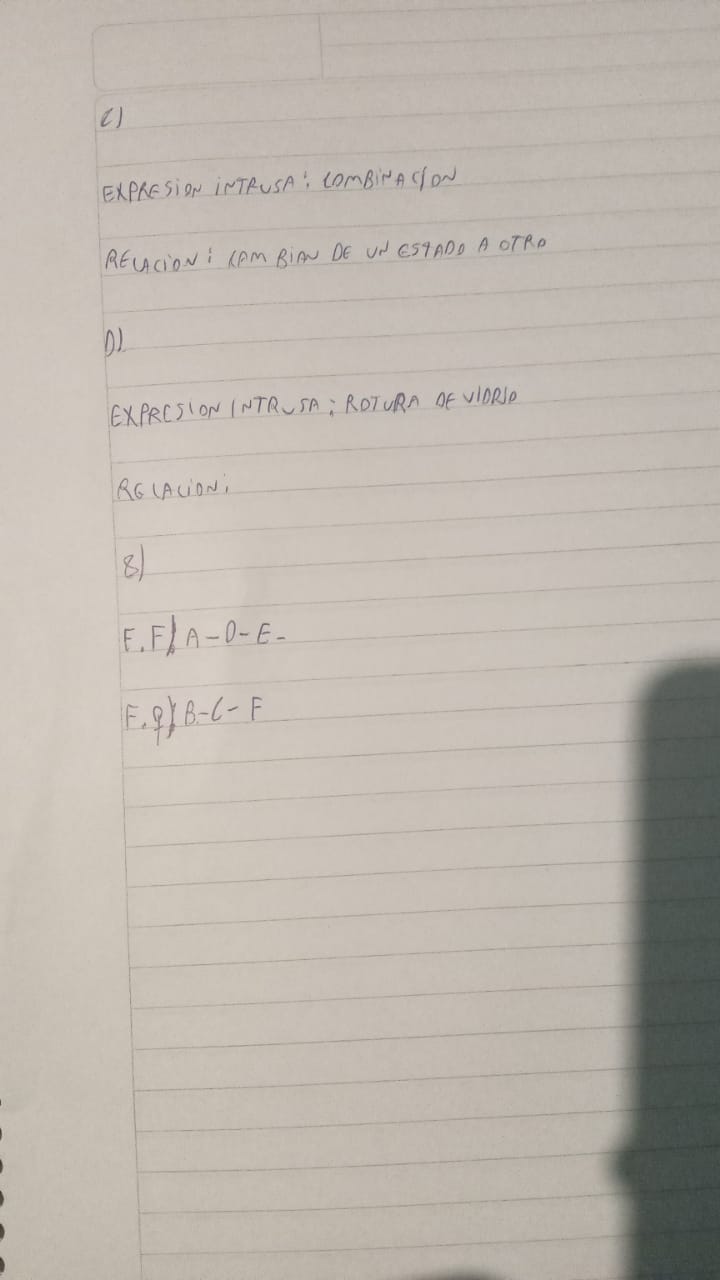 C)
EXPRESION INTRUSA: COMBINACION
RELACION: CAMBIAN DE UN ESTADO A OTRO
D)
EXPRESION INTRUSA: ROTURA DE VIDRIO
RELACION:
8)
F.F) A-D-E-
F.Q) B-C-F